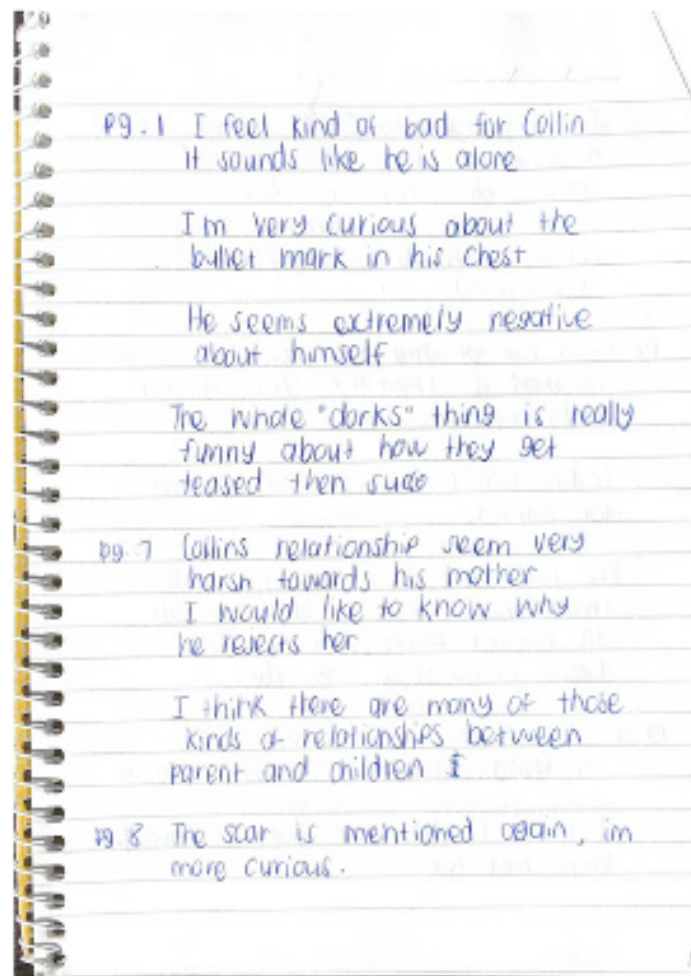 pg. 1 I feel kind of bad for Collin
it sounds like he is alone
Im very curious about the
bullet mark in his chest
He seems extremely negative
about himself
The whole "dorks" thing is really
funny about how they get
teased then
pg. 7 Collins relationship seem very
harsh towards his mother
I would like to know why
he rejects her
I think there are many of those
kinds of relationships between
parent and children
pg 8 The scar is mentioned again, im
more curious.